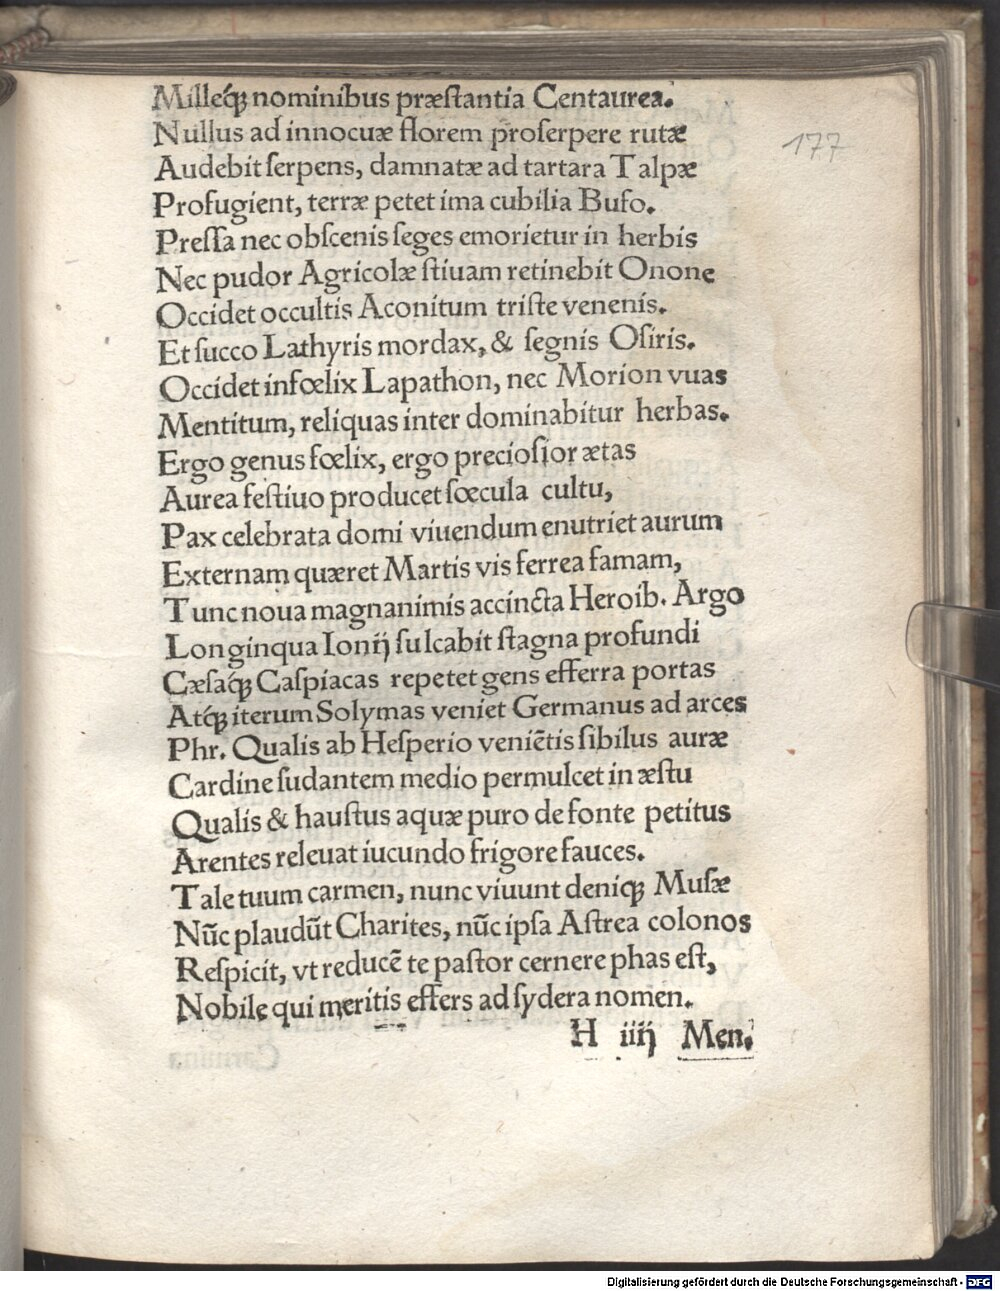 Milleq́ꝫ nominibus præſtantia Centaurea.
177
Nullus ad innocuæ florem proſerpere rutæ
Audebit ſerpens, damnatæ ad tartara Talpæ
Profugient, terræ petet ima cubilia Bufo.
Preſſa nec obſcenis ſeges emorietur in herbis
Nec pudor Agricolæ ſtiuam retinebit Onone
Occidet occultis Aconitum triſte venenis.
Et ſucco Lathyris mordax, & ſegnis Oſiris.
Occidet infœlix Lapathon, nec Morion vuas
Mentitum, reliquas inter dominabitur herbas.
Ergo genus fœlix, ergo precioſior ætas
Aurea feſtiuo producet ſœcula cultu,
Pax celebrata domi viuendum enutriet aurum
Externam quæret Martis vis ferrea famam,
Tunc noua magnanimis accincta Heroib. Argo
Longinqua Ionij ſulcabit ſtagna profundi
Cæſaq́ꝫ Caſpiacas repetet gens efferra portas
Atq́ꝫ iterum Solymas veniet Germanus ad arces
Phr. Qualis ab Heſperio veniẽtis ſibilus auræ
Cardine ſudantem medio permulcet in æſtu
Qualis & hauſtus aquæ puro de fonte petitus
Arentes releuat iucundo frigore fauces.
Tale tuum carmen, nunc viuunt deniqꝫ Muſæ
Nũc plaudũt Charites, nũc ipſa Aſtrea colonos
Reſpicit, vt reducẽ te paſtor cernere phas eſt,
Nobile qui meritis effers ad ſydera nomen.
H iiij Men.
Digitalisierung gefördert durch die Deutsche Forschungsgemeinschaft - DFG